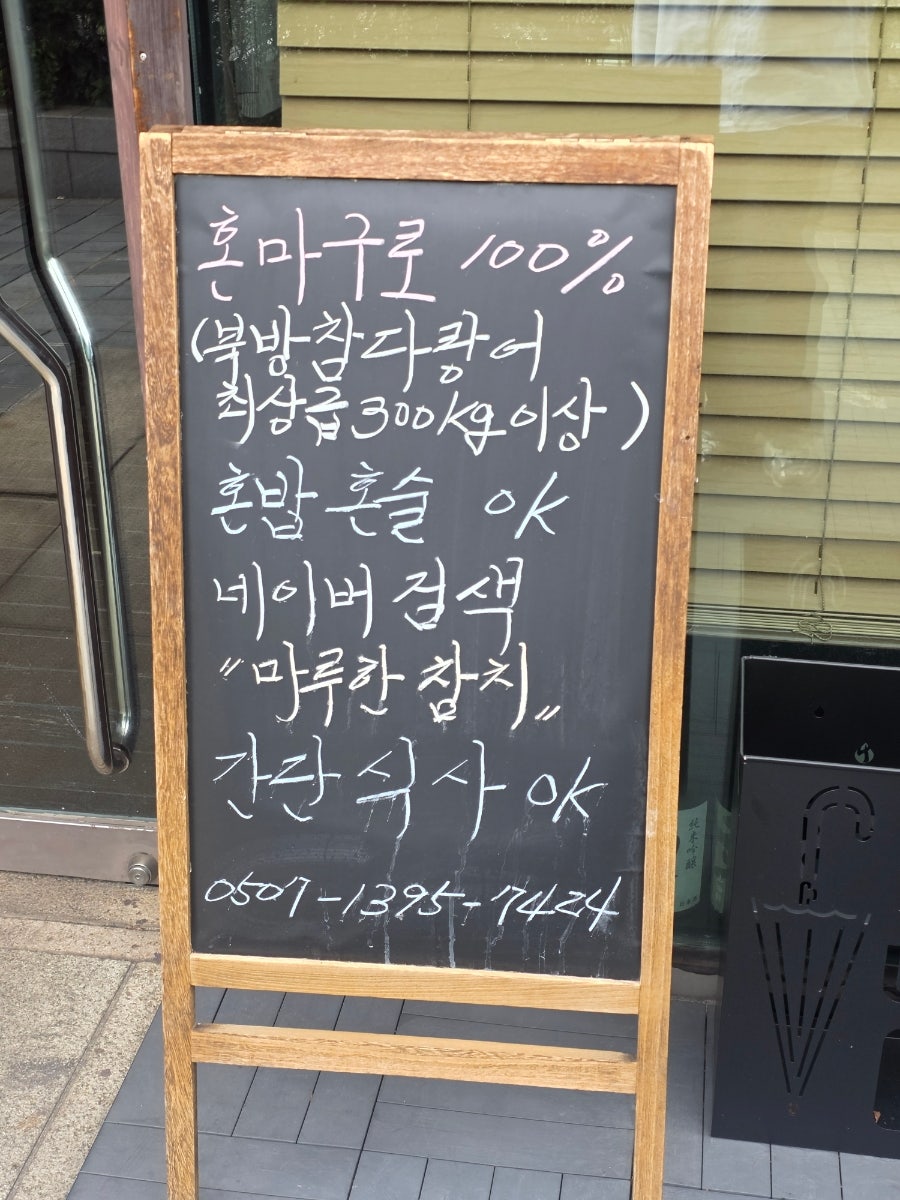 혼마구로 100%
(북방참다랑어
최상급 300kg 이상)
혼밥 혼술 OK
네이버 검색
"마루한 참치"
간단 식사 OK
0507-1395-7424
純米吟醸